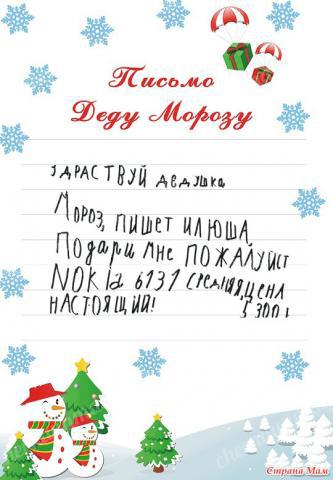 Письмо
Деду Морозу
ЗДРАСТВУЙ ДЕДУШКА
МОРОЗ, ПИШЕТ ИЛЮША
ПОДАРИ МНЕ ПОЖАЛУЙСТ
NOKIA 6131 СРЕДНЯЯ, ЦЕНА
НАСТОЯЩИЙ! 5300
Страна Мам